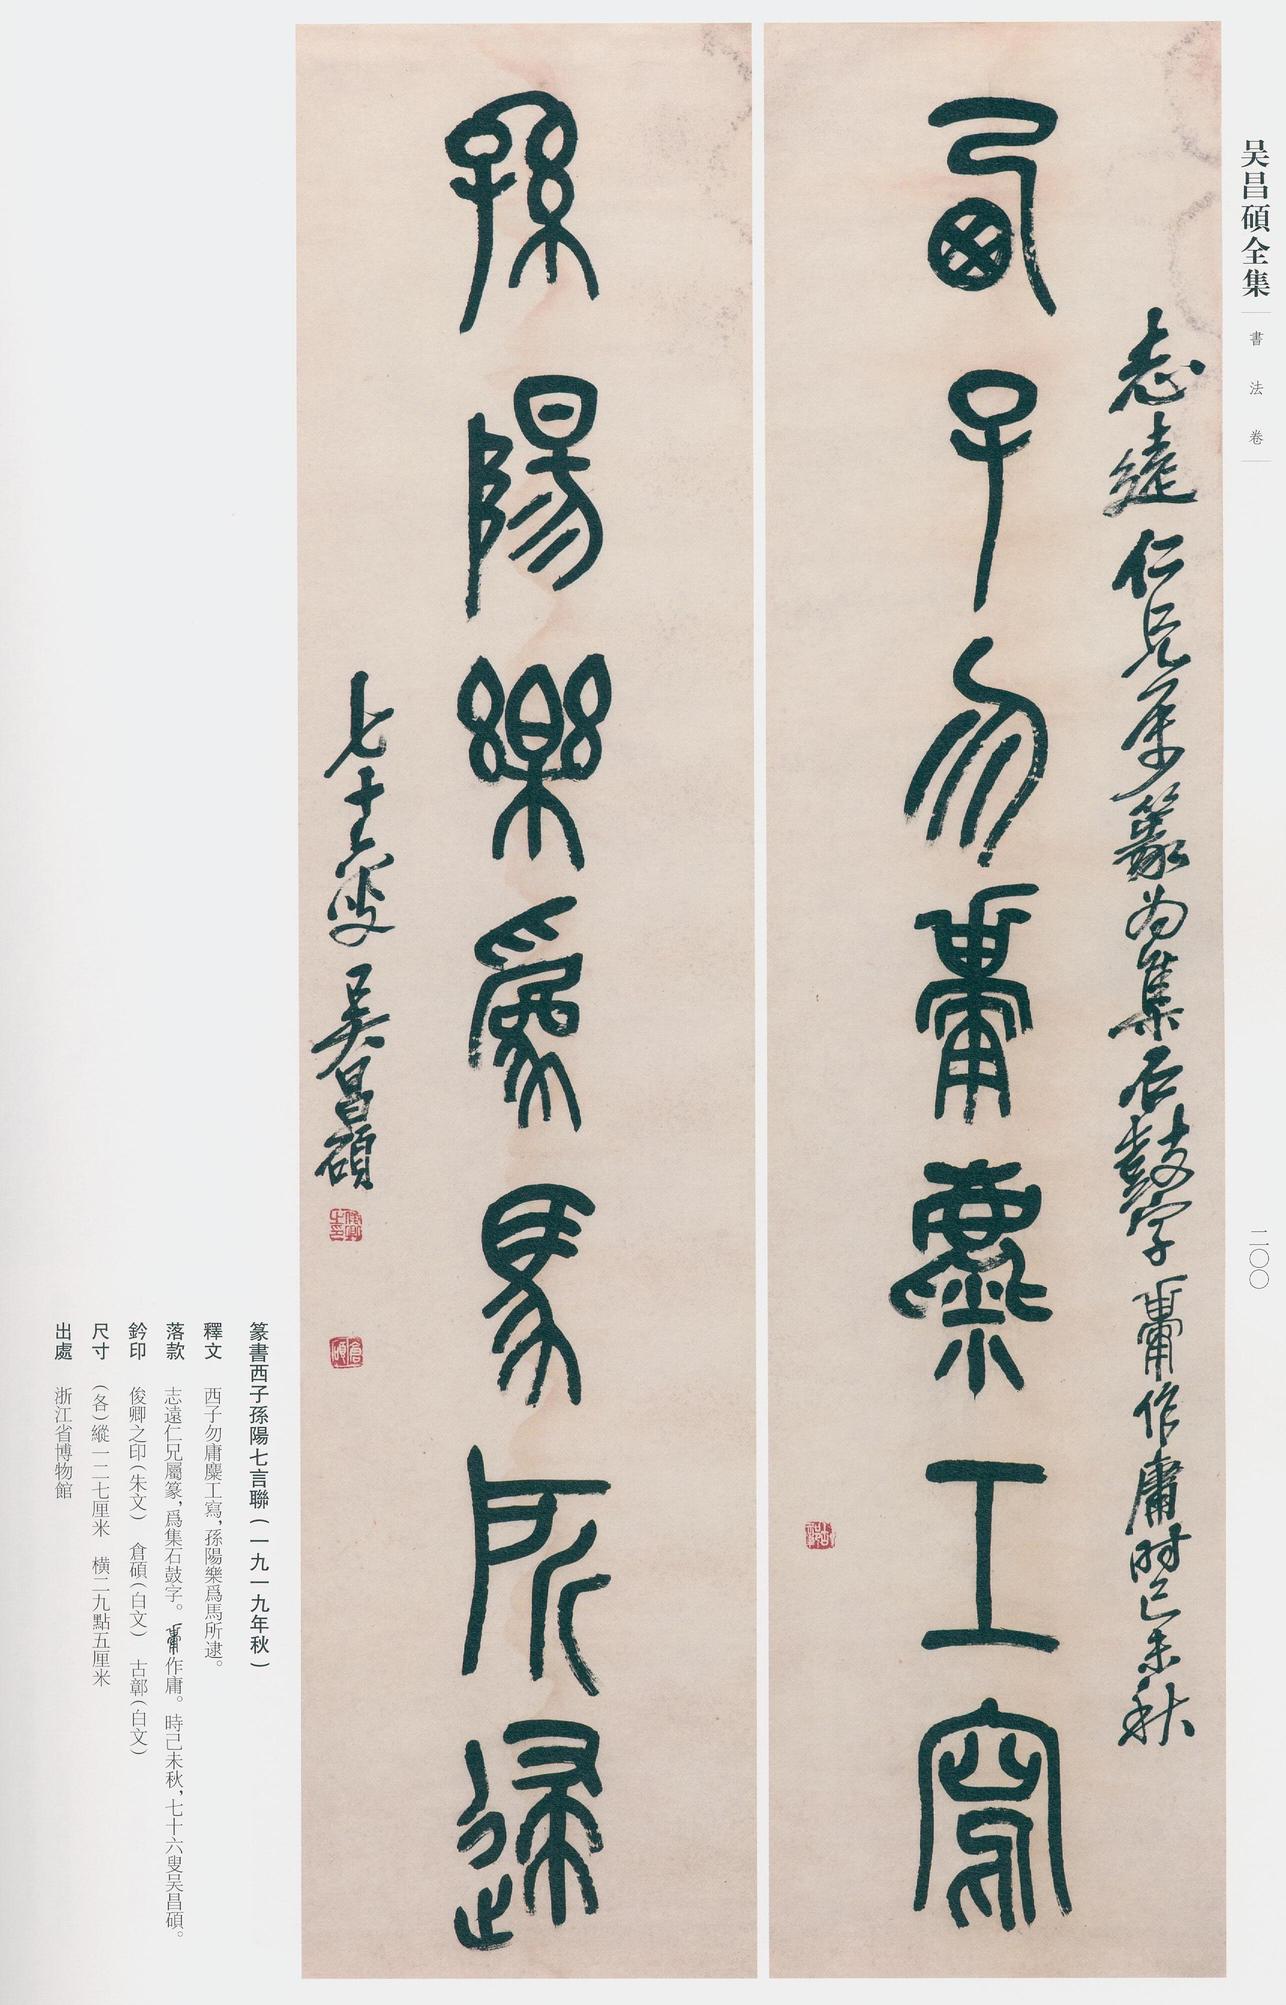 吴昌碩全集
書法卷
二〇〇
志遠仁兄属篆为集石鼓字𤰈作庸时己未秋
西子勿庸麋工寫
孫陽樂爲馬所逮
七十六叟吴昌碩
篆書西子孫陽七言聯(一九一九年秋)
釋文 西子勿庸麋工寫,孫陽樂爲馬所逮。
落款 志遠仁兄屬篆,爲集石鼓字。𤰈作庸。時己未秋,七十六叟吴昌碩。
鈐印 俊卿之印(朱文) 倉碩(白文) 古鄣(白文)
尺寸 (各)縱一二七厘米 橫二九點五厘米
出處 浙江省博物館